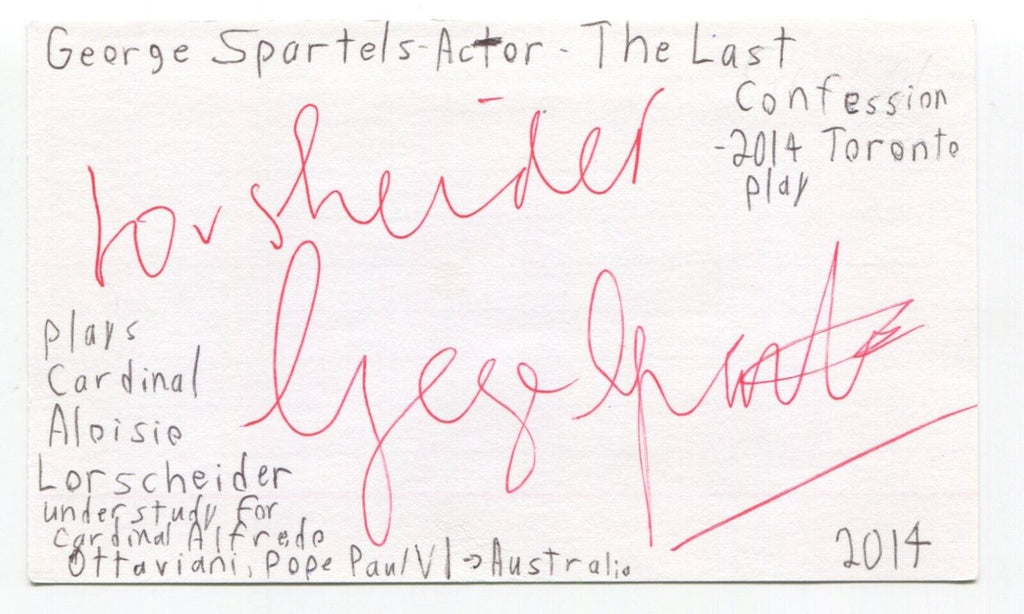 George Spartels-Actor - The Last
Confession
-2014 Toronto
play
Lorsheider
George Spartels
plays
Cardinal
Aloisio
Lorscheider
understudy for
Cardinal Alfredo
Ottaviani, Pope Paul VI → Australia
2014